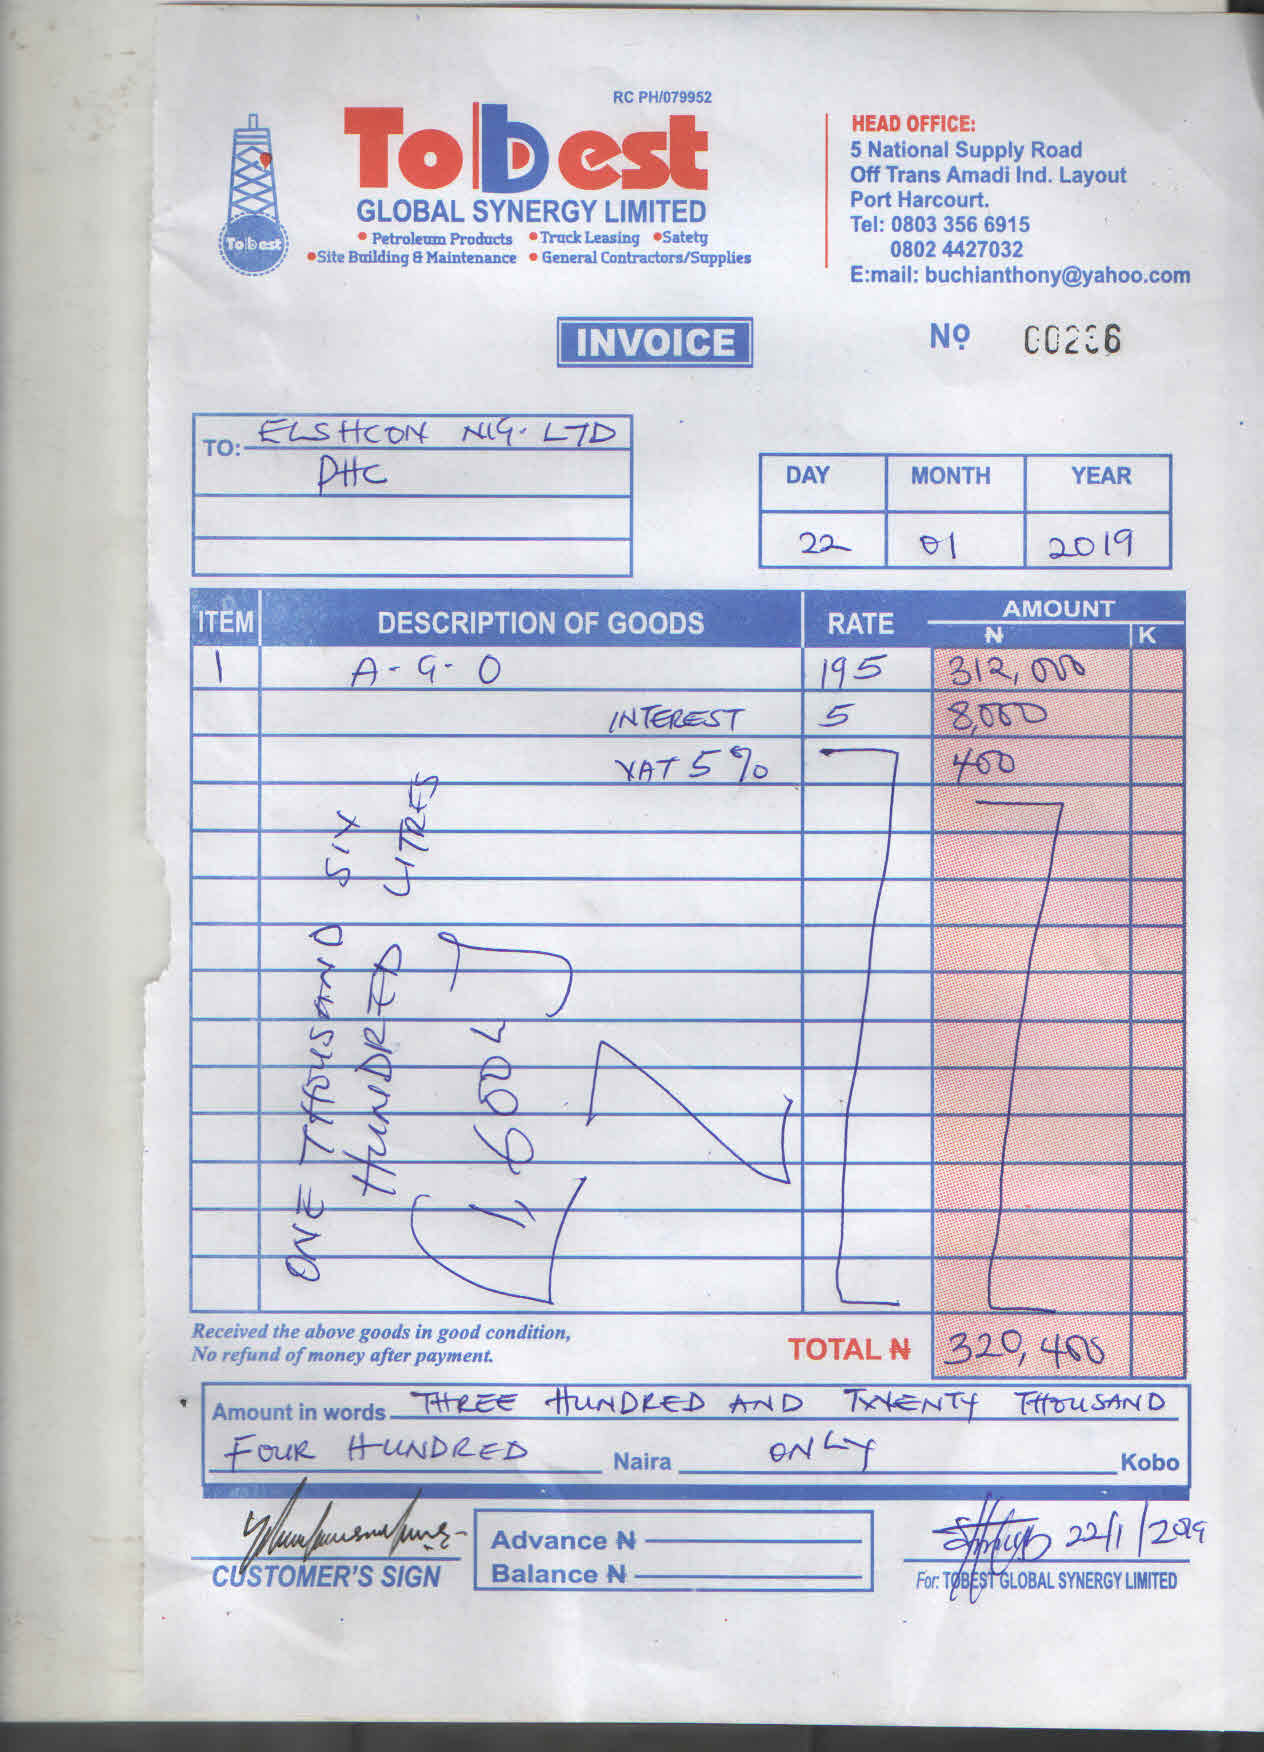 RC PH/079952
Tobest
GLOBAL SYNERGY LIMITED
• Petroleum Products • Truck Leasing • Satety
• Site Building & Maintenance • General Contractors/Supplies
Tobest
HEAD OFFICE:
5 National Supply Road
Off Trans Amadi Ind. Layout
Port Harcourt.
Tel: 0803 356 6915
0802 4427032
E:mail: buchianthony@yahoo.com
INVOICE
Nº
TO: ELSHCON NIG. LTD
PHC
DAY MONTH YEAR
22 01 2019
ITEM DESCRIPTION OF GOODS RATE AMOUNT
₦ K
1 A-G-O 195 312,000
INTEREST 5 8,000
VAT 5% 400
ONE THOUSAND SIX
HUNDRED LITRES
1,600L
Received the above goods in good condition,
No refund of money after payment.
TOTAL ₦ 320,400
Amount in words THREE HUNDRED AND TWENTY THOUSAND
FOUR HUNDRED Naira ONLY Kobo
CUSTOMER'S SIGN
Advance ₦
Balance ₦
22/1/2019
For: TOBEST GLOBAL SYNERGY LIMITED